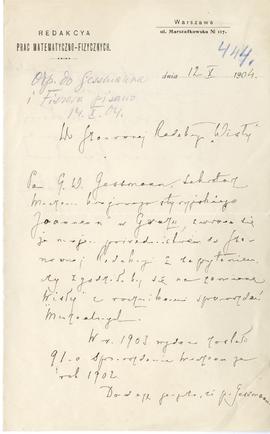 REDAKCYA
PRAC MATEMATYCZNO-FIZYCZNYCH.
Warszawa
ul. Marszałkowska № 117.
444.
Odp. do Gessmanna
i Fiszera pisano
14.X.04.
dnia 12 X 1904
Do Szanownej Redakcyi „Wisły”
Pan G. W. Gessmann, sekretarz
Muzeum krajowego styryjskiego
Joanneum w Grazu, zwraca się
za moim pośrednictwem do Sza-
nownej Redakcyi z zapytaniem,
czy zgodziłaby się na zamianę
Wisły z rocznikami sprawozdań
Muzealnych.
W r. 1903 wydane zostało
91-e Sprawozdanie muzeum za
rok 1902
Dodaję że p. Gessmann